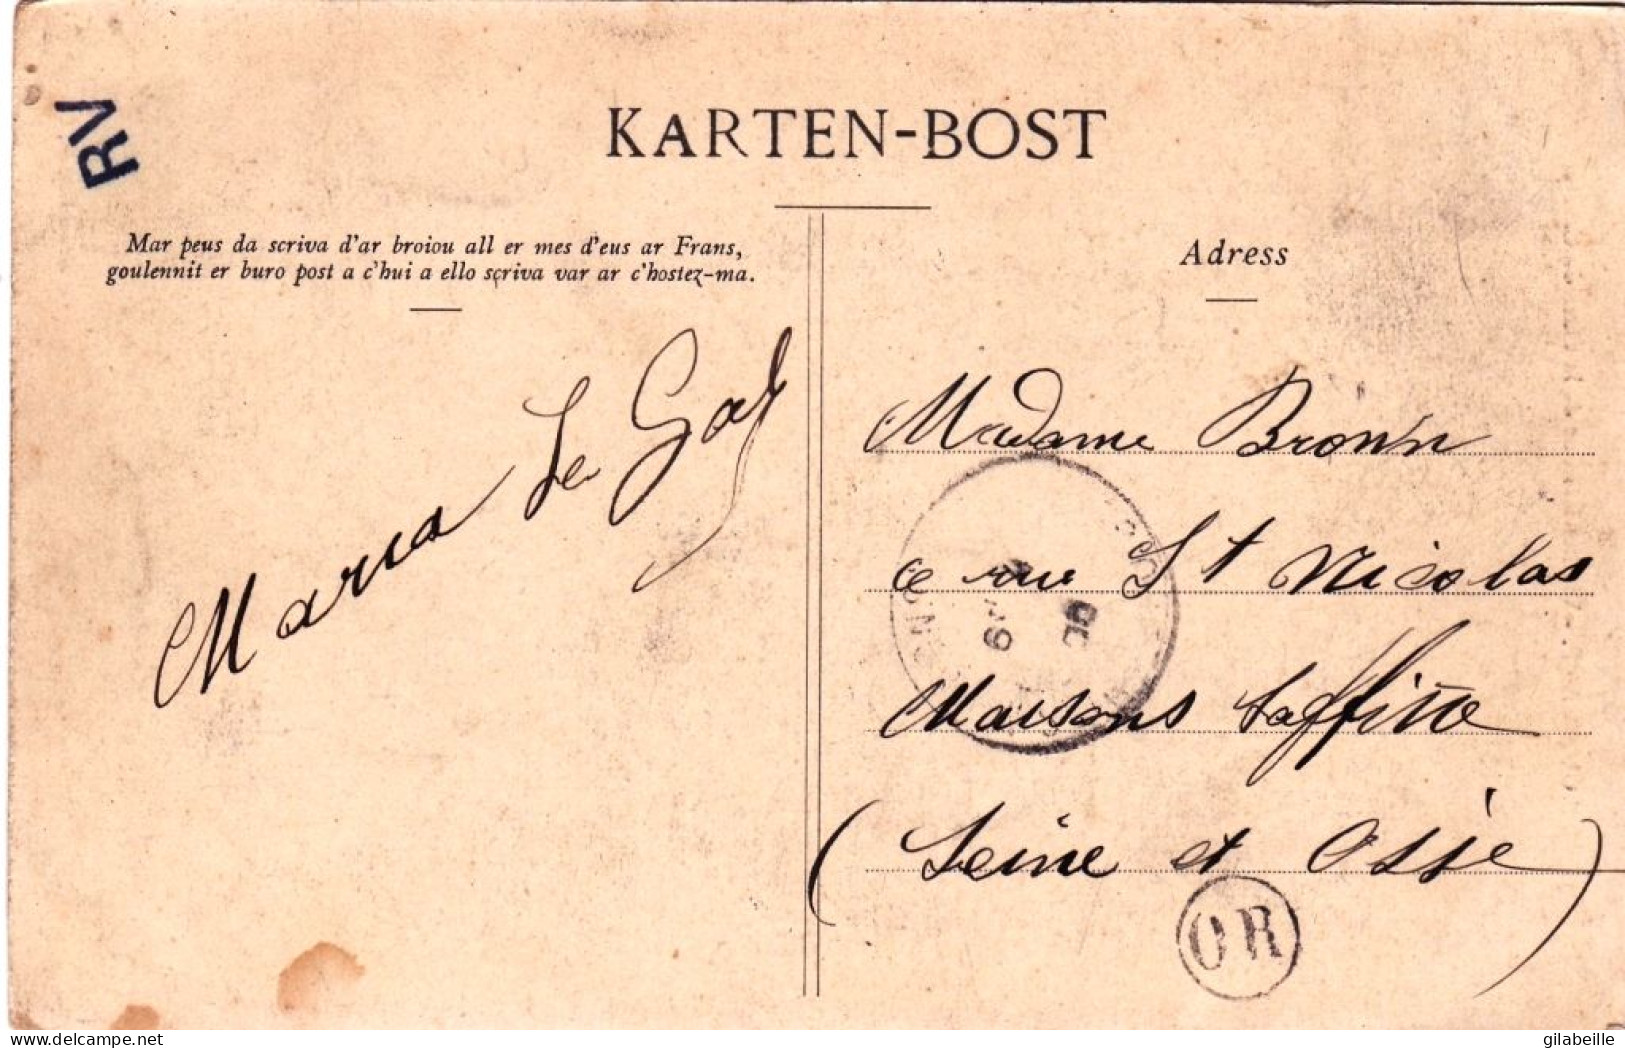 RV
KARTEN-BOST
Mar peus da scriva d'ar broiou all er mes d'eus ar Frans,
goulennit er buro post a c'hui a ello scriva var ar c'hostez-ma.
Adress
Maria Le Gal
Madame Brown
rue St Nicolas
Maisons Laffitte
(Seine et Oise)
OR
gilabeille